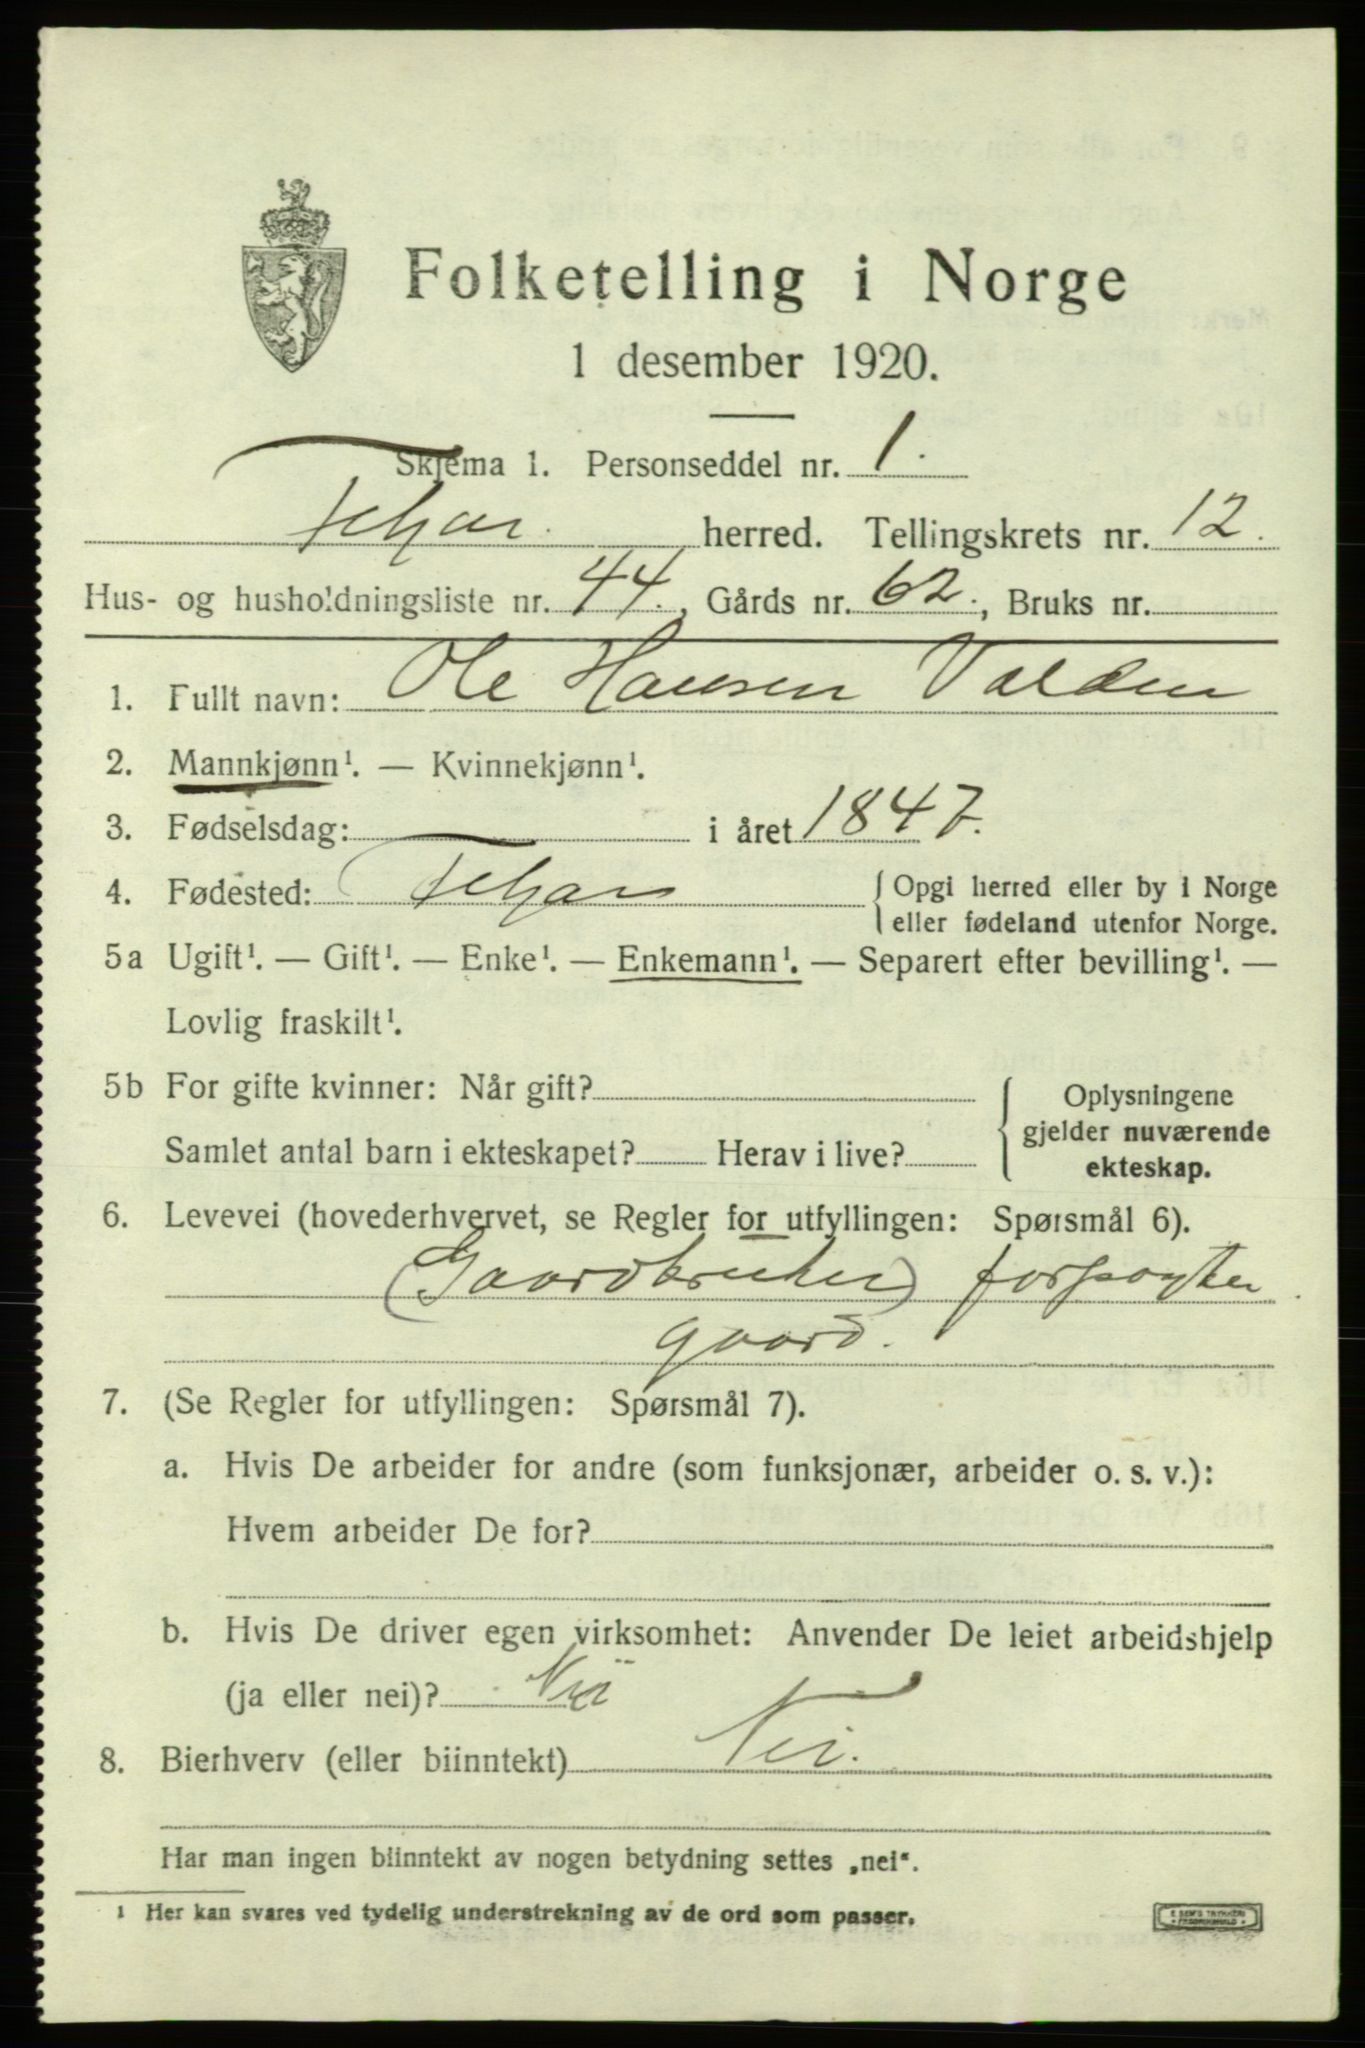 Folketelling i Norge
1 desember 1920.
Skjema 1. Personseddel nr. 1.
herred. Tellingskrets nr. 12.
Hus- og husholdningsliste nr. 44., Gårds nr. 62., Bruks nr.
1. Fullt navn: Ole Hansen Valdem
2. Mannkjønn¹. — Kvinnekjønn¹.
3. Fødselsdag: — i året 1847.
4. Fødested: { Opgi herred eller by i Norge
eller fødeland utenfor Norge.
5a Ugift¹. — Gift¹. — Enke¹. — Enkemann¹. — Separert efter bevilling¹. —
Lovlig fraskilt¹.
5b For gifte kvinner: Når gift? { Oplysningene
gjelder nuværende
Samlet antal barn i ekteskapet? Herav i live? ekteskap.
6. Levevei (hovederhvervet, se Regler for utfyllingen: Spørsmål 6).
(Gaardbruker) forpagter
gaard.
7. (Se Regler for utfyllingen: Spørsmål 7).
a. Hvis De arbeider for andre (som funksjonær, arbeider o. s. v.):
Hvem arbeider De for?
b. Hvis De driver egen virksomhet: Anvender De leiet arbeidshjelp
(ja eller nei)? Nei
8. Bierhverv (eller biinntekt) Nei.
Har man ingen biinntekt av nogen betydning settes „nei“.
1 Her kan svares ved tydelig understrekning av de ord som passer.